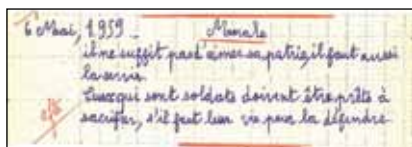 6 Mai, 1959 _ Morale
il ne suffit pas d'aimer sa patrie, il faut aussi
la servir.
Ceux qui sont soldats doivent être prêts à
sacrifier, s'il faut leur vie pour la défendre.